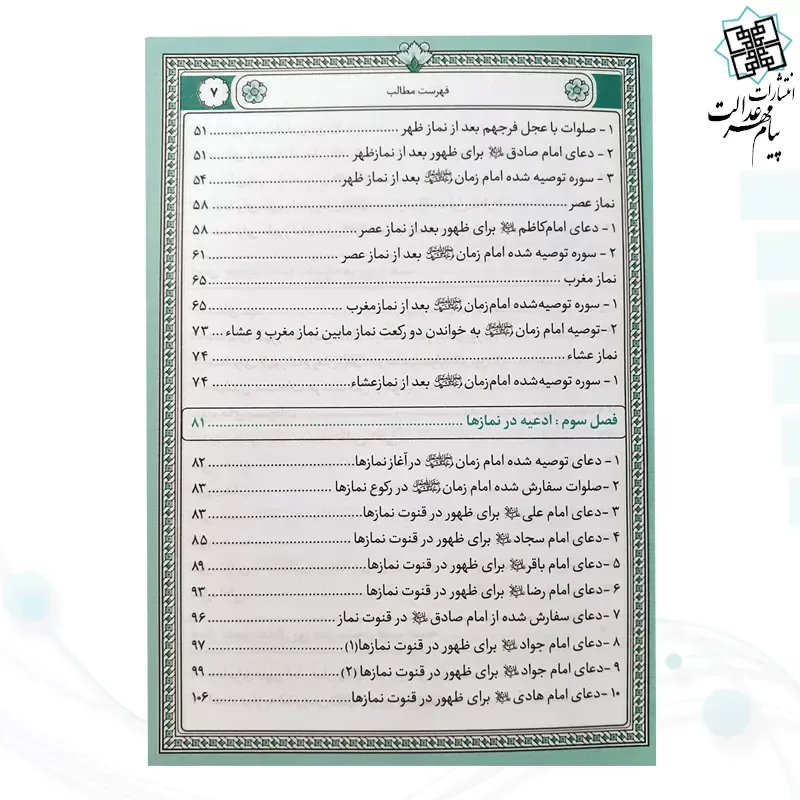 انتشارات
پیام مهر عدالت
فهرست مطالب
۷
۱ - صلوات با عجل فرجهم بعد از نماز ظهر ........................................ ۵۱
۲ - دعای امام صادق علیه‌السلام برای ظهور بعد از نمازظهر ........................ ۵۱
۳ - سوره توصیه شده امام زمان بعد از نماز ظهر........................ ۵۴
نماز عصر........................................................................ ۵۸
۱ - دعای امام‌کاظم علیه‌السلام برای ظهور بعد از نماز عصر........................ ۵۸
۲ - سوره توصیه شده امام زمان بعد از نماز عصر ........................ ۶۱
نماز مغرب........................................................................ ۶۵
۱ - سوره توصیه‌شده امام‌زمان بعد از نمازمغرب ........................ ۶۵
۲ -توصیه امام زمان به خواندن دو رکعت نماز مابین نماز مغرب و عشاء ... ۷۳
نماز عشاء........................................................................ ۷۴
۱ - سوره توصیه‌شده امام‌زمان بعد از نمازعشاء........................ ۷۴
فصل سوم : ادعیه در نمازها ................................................ ۸۱
۱ - دعای توصیه شده امام زمان در آغاز نمازها........................ ۸۲
۲ -صلوات سفارش شده امام زمان در رکوع نمازها ........................ ۸۳
۳ -دعای امام علی علیه‌السلام برای ظهور در قنوت نمازها........................ ۸۳
۴ -دعای امام سجاد علیه‌السلام برای ظهور در قنوت نمازها........................ ۸۵
۵ -دعای امام باقر علیه‌السلام برای ظهور در قنوت نمازها........................ ۸۹
۶ -دعای امام رضا علیه‌السلام برای ظهور در قنوت نمازها ........................ ۹۳
۷ -دعای سفارش شده از امام صادق علیه‌السلام در قنوت نماز ........................ ۹۶
۸ -دعای امام جواد علیه‌السلام برای ظهور در قنوت نمازها(۱)........................ ۹۷
۹ -دعای امام جواد علیه‌السلام برای ظهور در قنوت نمازها (۲)........................ ۹۹
۱۰ -دعای امام هادی علیه‌السلام برای ظهور در قنوت نمازها........................ ۱۰۶